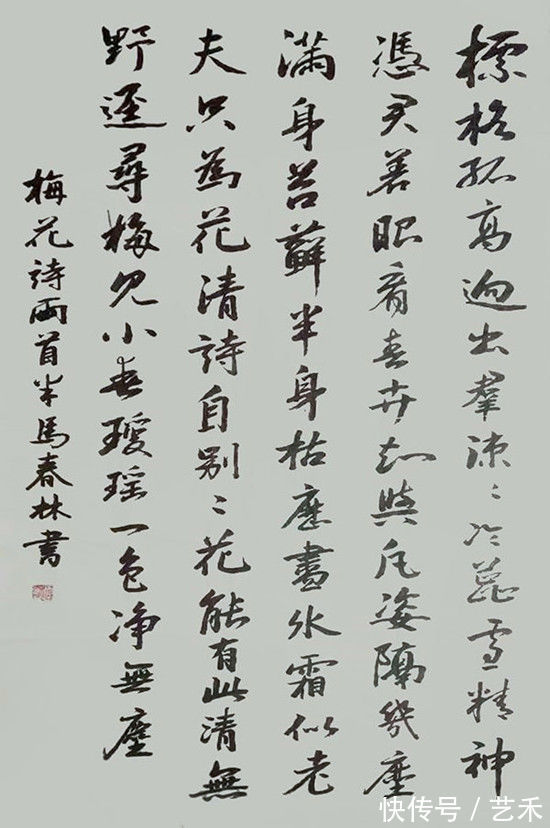 標格孤高迥出羣疎〻冷蕊雪精神
憑君著眼看春卉知與凡姿隔幾塵
滿身苔蘚半身枯歷盡冰霜似老
夫只為花清詩自別〻花能有此清無
野逕尋梅見小春瓊瑤一色淨無塵
梅花詩兩首半馬春林書
快传号/艺禾